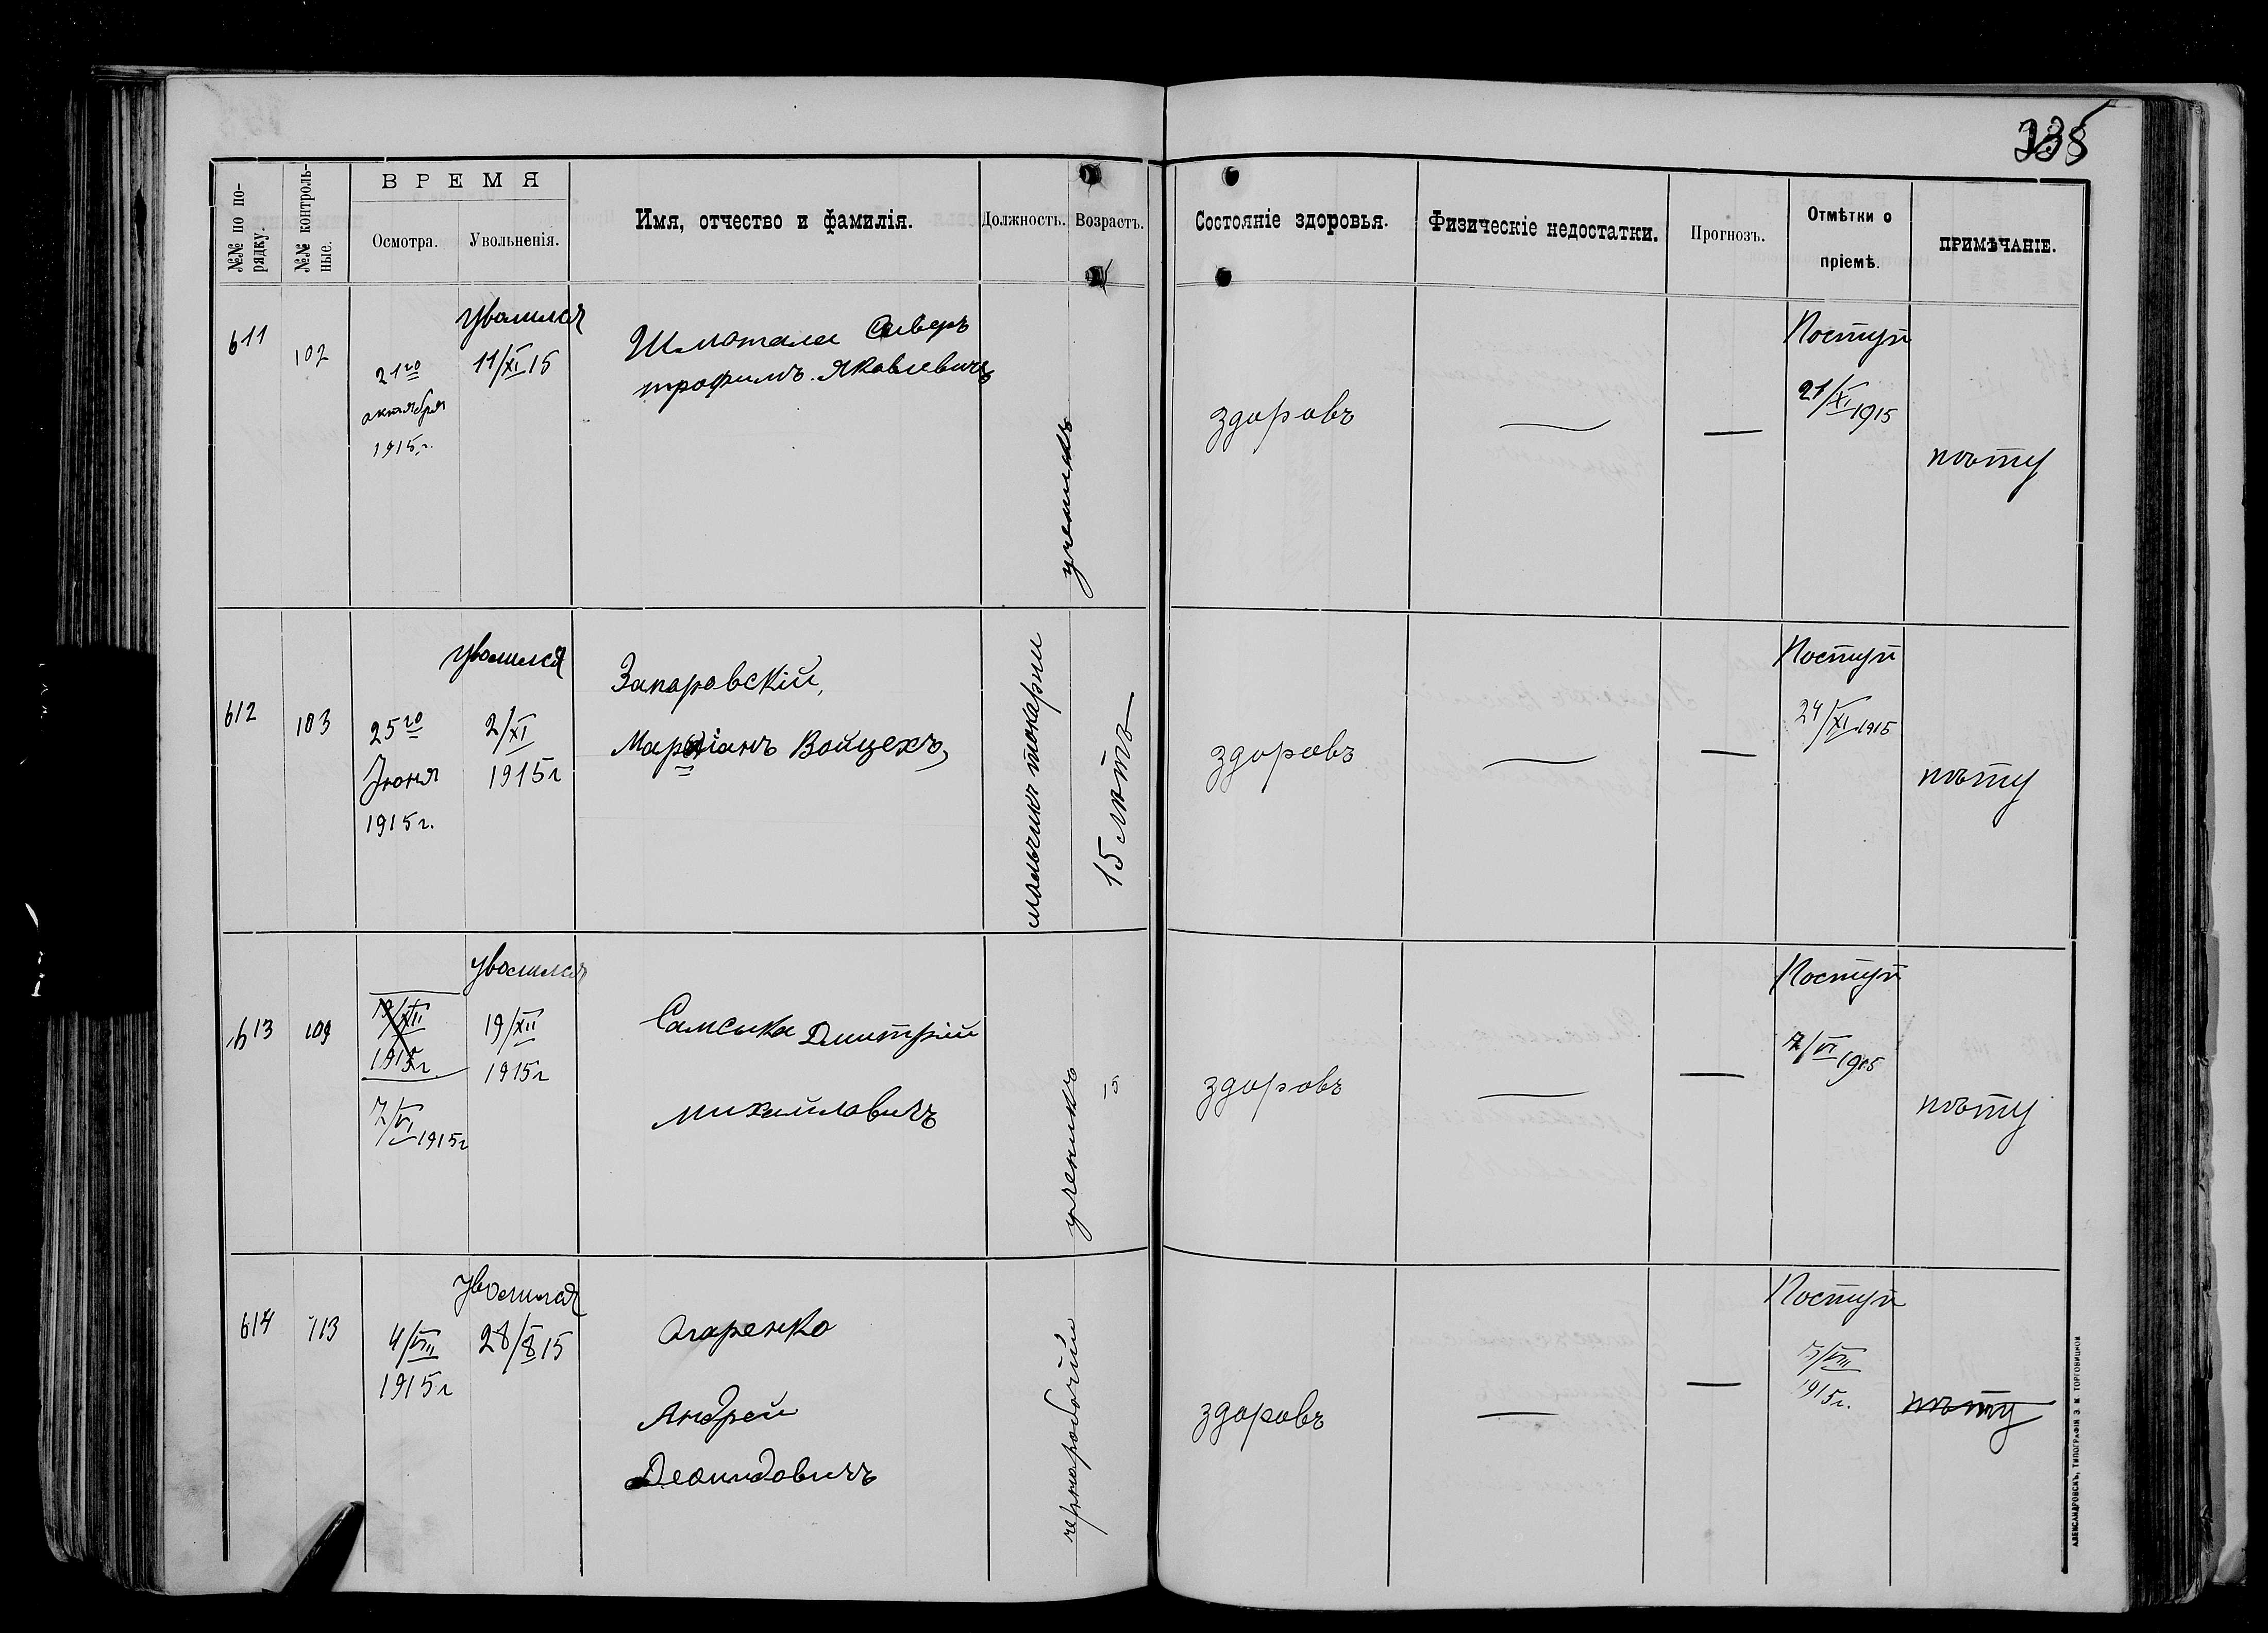 335
ВРЕМЯ
№№ по по-
рядку.
№№ контроль-
ные.
Осмотра.
Увольненія.
Имя, отчество и фамилія.
Должность.
Возрастъ.
Состояніе здоровья.
Физическіе недостатки.
Прогнозъ.
Отмѣтки о
пріемѣ.
ПРИМѢЧАНІЕ.
611
102
21го
октября
1915г.
Уволился
11/XI 15
Шмотала
трофимъ Яковлевичъ
ученикъ
здоровъ
—
—
Поступ
21/XI 1915
612
103
25го
Іюня
1915г.
Уволился
2/XI
1915г
Запаровскій,
Маріанъ Войцехъ,
мальчикъ токарни
15 лѣтъ
здоровъ
—
—
Поступ
24/XI 1915
613
109
19/XII
1915г
7/VI 1915г
Уволился
19/XII
1915г
Самсика Дмитрій
михайловичъ
ученикъ
15
здоровъ
—
—
Поступ
7/VI 1915
614
113
4/VIII
1915г
Уволился
28/8 15
Огаренко
Андрей
Леонидовичъ
чернорабочій
здоровъ
—
—
Поступ
5/VIII
1915г.
АЛЕКСАНДРОВСКЪ, ТИПОГРАФІЯ Э. И. ТОРГОВИЦКОЙ